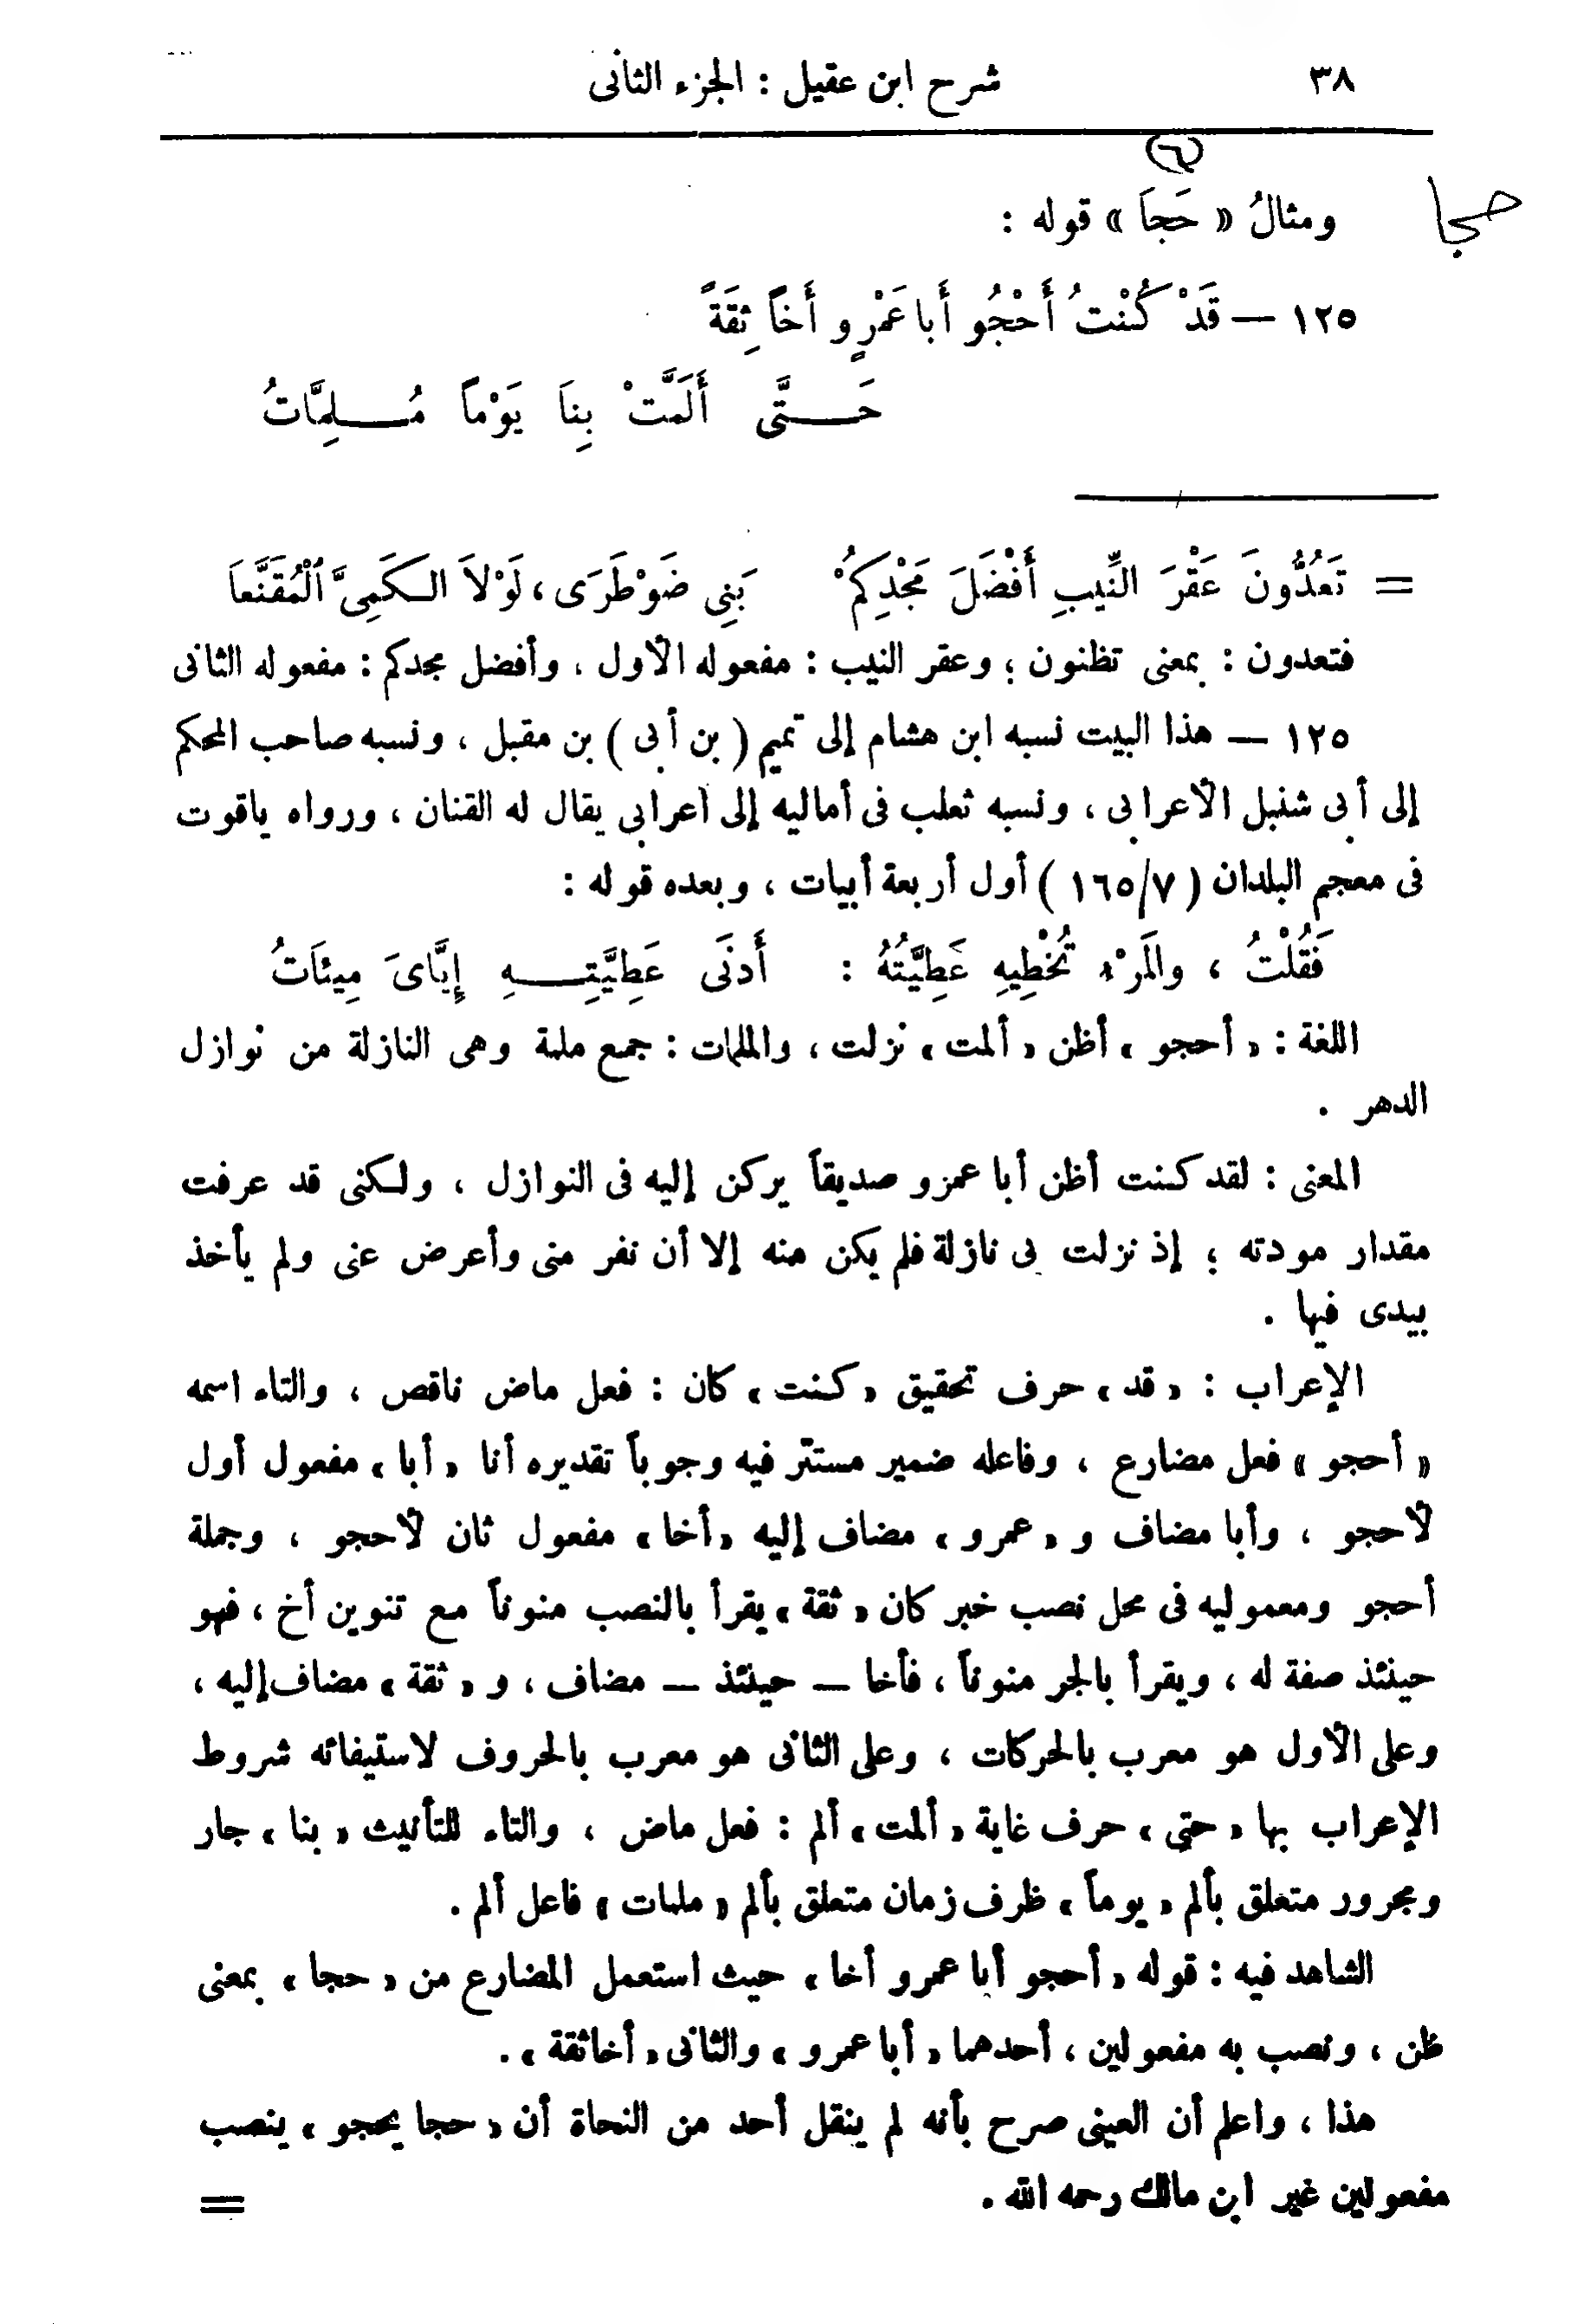 ٣٨ شرح ابن عقيل : الجزء الثانى
(٦)
حجا
ومثالُ « حَجاَ » قوله :
١٢٥ — قَدْ كُنْتُ أَحْجُو أَبا عَمْرٍو أَخاً ثِقَةً
حَـــتَّى أَلَمَّتْ بِناَ يَوْماً مُـــلِمَّاتُ
= تَعُدُّونَ عَقْرَ النِّيبِ أَفْضَلَ مَجْدِكُمْ بَنِي ضَوْطَرَى، لَوْلاَ الكَمِىَّ ٱلْمُقَنَّعاَ
فتعدون : بمعنى تظنون ؛ وعقر النيب : مفعوله الأول ، وأفضل مجدكم : مفعوله الثانى
١٢٥ — هذا البيت نسبه ابن هشام إلى تميم ( بن أبى ) بن مقبل ، ونسبه صاحب المحكم
إلى أبى شنبل الأعرابى ، ونسبه ثعلب فى أماليه إلى أعرابى يقال له القنان ، ورواه ياقوت
فى معجم البلدان ( ٧/١٦٥ ) أول أربعة أبيات ، وبعده قوله :
فَقُلْتُ ، والمَرْء تُخْطِيهِ عَطِيَّتُهُ : أَدنَى عَطِيَّتِـــهِ إِيَّاىَ مِيئاَتُ
اللغة : « أحجو » أظن « ألمت » نزلت ، والملمات : جمع ملمة وهى النازلة من نوازل
الدهر .
المعنى : لقد كنت أظن أبا عمرو صديقاً يركن إليه فى النوازل ، ولكنى قد عرفت
مقدار مودته ؛ إذ نزلت بى نازلة فلم يكن منه إلا أن نفر منى وأعرض عنى ولم يأخذ
بيدى فيها .
الإعراب : « قد » حرف تحقيق « كنت » كان : فعل ماض ناقص ، والتاء اسمه
« أحجو » فعل مضارع ، وفاعله ضمير مستتر فيه وجوباً تقديره أنا « أبا » مفعول أول
لأحجو ، وأبا مضاف و « عمرو » مضاف إليه « أخا » مفعول ثان لأحجو ، وجملة
أحجو ومعموليه فى محل نصب خبر كان « ثقة » يقرأ بالنصب منوناً مع تنوين أخ ، فهو
حينئذ صفة له ، ويقرأ بالجر منوناً ، فأخا — حينئذ — مضاف ، و « ثقة » مضاف إليه ،
وعلى الأول هو معرب بالحركات ، وعلى الثانى هو معرب بالحروف لاستيفائه شروط
الإعراب بها « حتى » حرف غاية « ألمت » ألم : فعل ماض ، والتاء للتأنيث « بنا » جار
ومجرور متعلق بألم « يوماً » ظرف زمان متعلق بألم « ملمات » فاعل ألم .
الشاهد فيه : قوله « أحجو أبا عمرو أخا » حيث استعمل المضارع من « حجا » بمعنى
ظن ، ونصب به مفعولين ، أحدهما « أبا عمرو » والثانى « أخا ثقة » .
هذا ، واعلم أن العينى صرح بأنه لم ينقل أحد من النحاة أن « حجا يحجو » ينصب
مفعولين غير ابن مالك رحمه الله . =